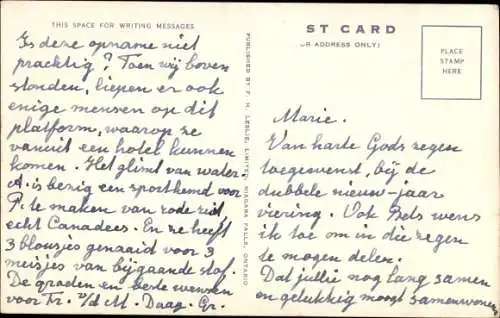 THIS SPACE FOR WRITING MESSAGES
Is deze opname niet
prachtig? Toen wij boven
stonden, liepen er ook
enige mensen op dit
platform, waarop ze
vanuit een hotel kunnen
komen. Het glimt van water.
A. is bezig een sporthemd voor
P. te maken van rode zij,
echt Canadees. En ze heeft
3 blousjes genaaid voor 3
meisjes van bijgaande stof.
De groeten en beste wensen
voor Fr. v/d M. Daag. Gr.
PUBLISHED BY F. H. LESLIE, LIMITED, NIAGARA FALLS, ONTARIO
ST CARD
R ADDRESS ONLY)
PLACE
STAMP
HERE
Marie.
Van harte Gods zegen
toegewenst, bij de
dubbele nieuw-jaar
viering. Ook Bels wens
ik toe om in die zegen
te mogen delen.
Dat jullie nog lang samen
en gelukkig moogt samenwonen